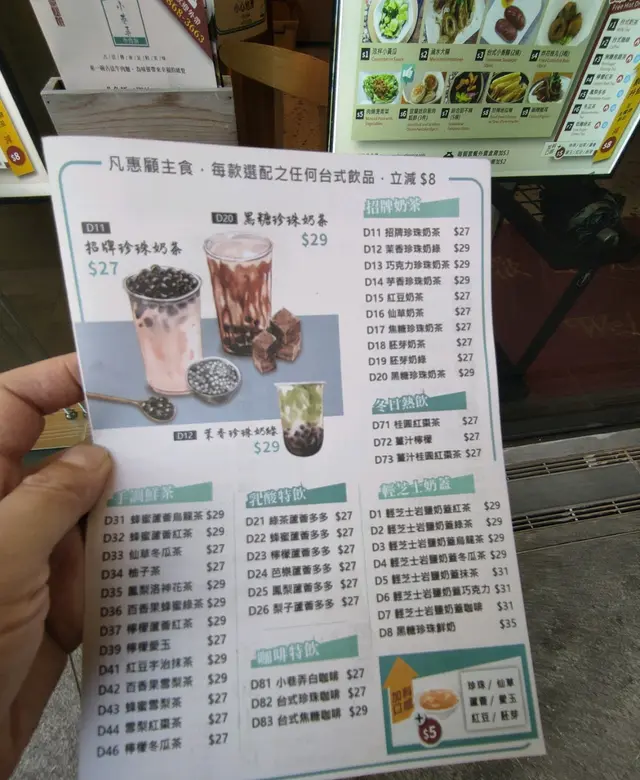 凡惠顧主食·每款選配之任何台式飲品·立減 $8
D11
招牌珍珠奶茶
$27
D20 黑糖珍珠奶茶
$29
D12 茉香珍珠奶綠
$29
招牌奶茶
D11 招牌珍珠奶茶 $27
D12 茉香珍珠奶綠 $29
D13 巧克力珍珠奶茶 $29
D14 芋香珍珠奶茶 $29
D15 紅豆奶茶 $27
D16 仙草奶茶 $27
D17 焦糖珍珠奶茶 $27
D18 胚芽奶茶 $27
D19 胚芽奶綠 $27
D20 黑糖珍珠奶茶 $29
冬日熱飲
D71 桂圓紅棗茶 $27
D72 薑汁檸檬 $27
D73 薑汁桂圓紅棗茶 $27
手調鮮茶
D31 蜂蜜蘆薈烏龍茶 $29
D32 蜂蜜蘆薈紅茶 $29
D33 仙草冬瓜茶 $27
D34 柚子茶 $27
D35 鳳梨洛神花茶 $29
D36 百香果蜂蜜綠茶 $29
D37 檸檬蘆薈紅茶 $29
D39 檸檬愛玉 $27
D41 紅豆宇治抹茶 $29
D42 百香果雪梨茶 $29
D43 蜂蜜雪梨茶 $27
D44 雪梨紅棗茶 $27
D46 檸檬冬瓜茶 $27
乳酸特飲
D21 綠茶蘆薈多多 $27
D22 蜂蜜蘆薈多多 $27
D23 檸檬蘆薈多多 $27
D24 芭樂蘆薈多多 $27
D25 鳳梨蘆薈多多 $27
D26 梨子蘆薈多多 $27
咖啡特飲
D81 小巷弄白咖啡 $27
D82 台式珍珠咖啡 $27
D83 台式焦糖咖啡 $29
輕芝士奶蓋
D1 輕芝士岩鹽奶蓋紅茶 $29
D2 輕芝士岩鹽奶蓋綠茶 $29
D3 輕芝士岩鹽奶蓋烏龍茶 $29
D4 輕芝士岩鹽奶蓋冬瓜茶 $29
D5 輕芝士岩鹽奶蓋抹茶 $31
D6 輕芝士岩鹽奶蓋巧克力 $31
D7 輕芝士岩鹽奶蓋咖啡 $31
D8 黑糖珍珠鮮奶 $35
加料
口感
+
$5
珍珠 / 仙草
蘆薈 / 愛玉
紅豆 / 胚芽